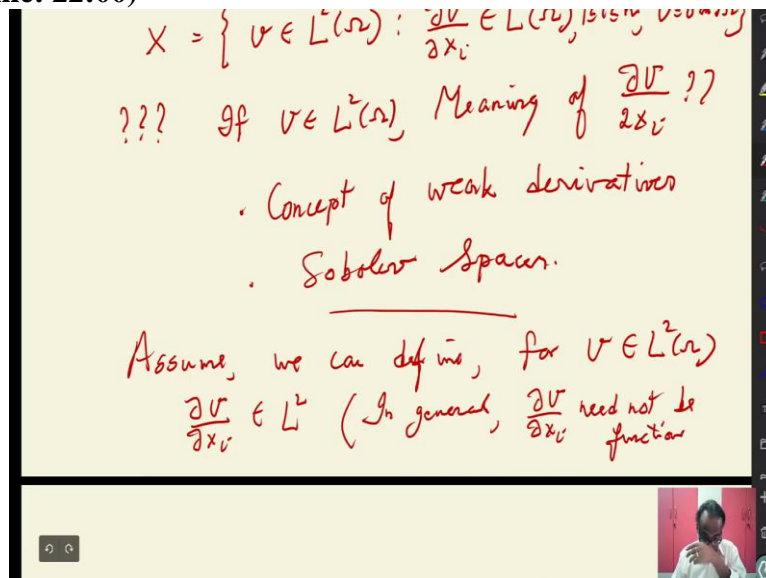 me: 22:00)
X = { v ∈ L²(Ω) : ∂v/∂xᵢ ∈ L²(Ω), 1≤i≤n, v=0 on ∂Ω}
??? If v ∈ L²(Ω), Meaning of ∂v/2xᵢ ??
. Concept of weak derivatives
. Sobolev Spaces.
Assume, we can define, for v ∈ L²(Ω)
∂v/∂xᵢ ∈ L² (In general, ∂v/∂xᵢ need not be
function